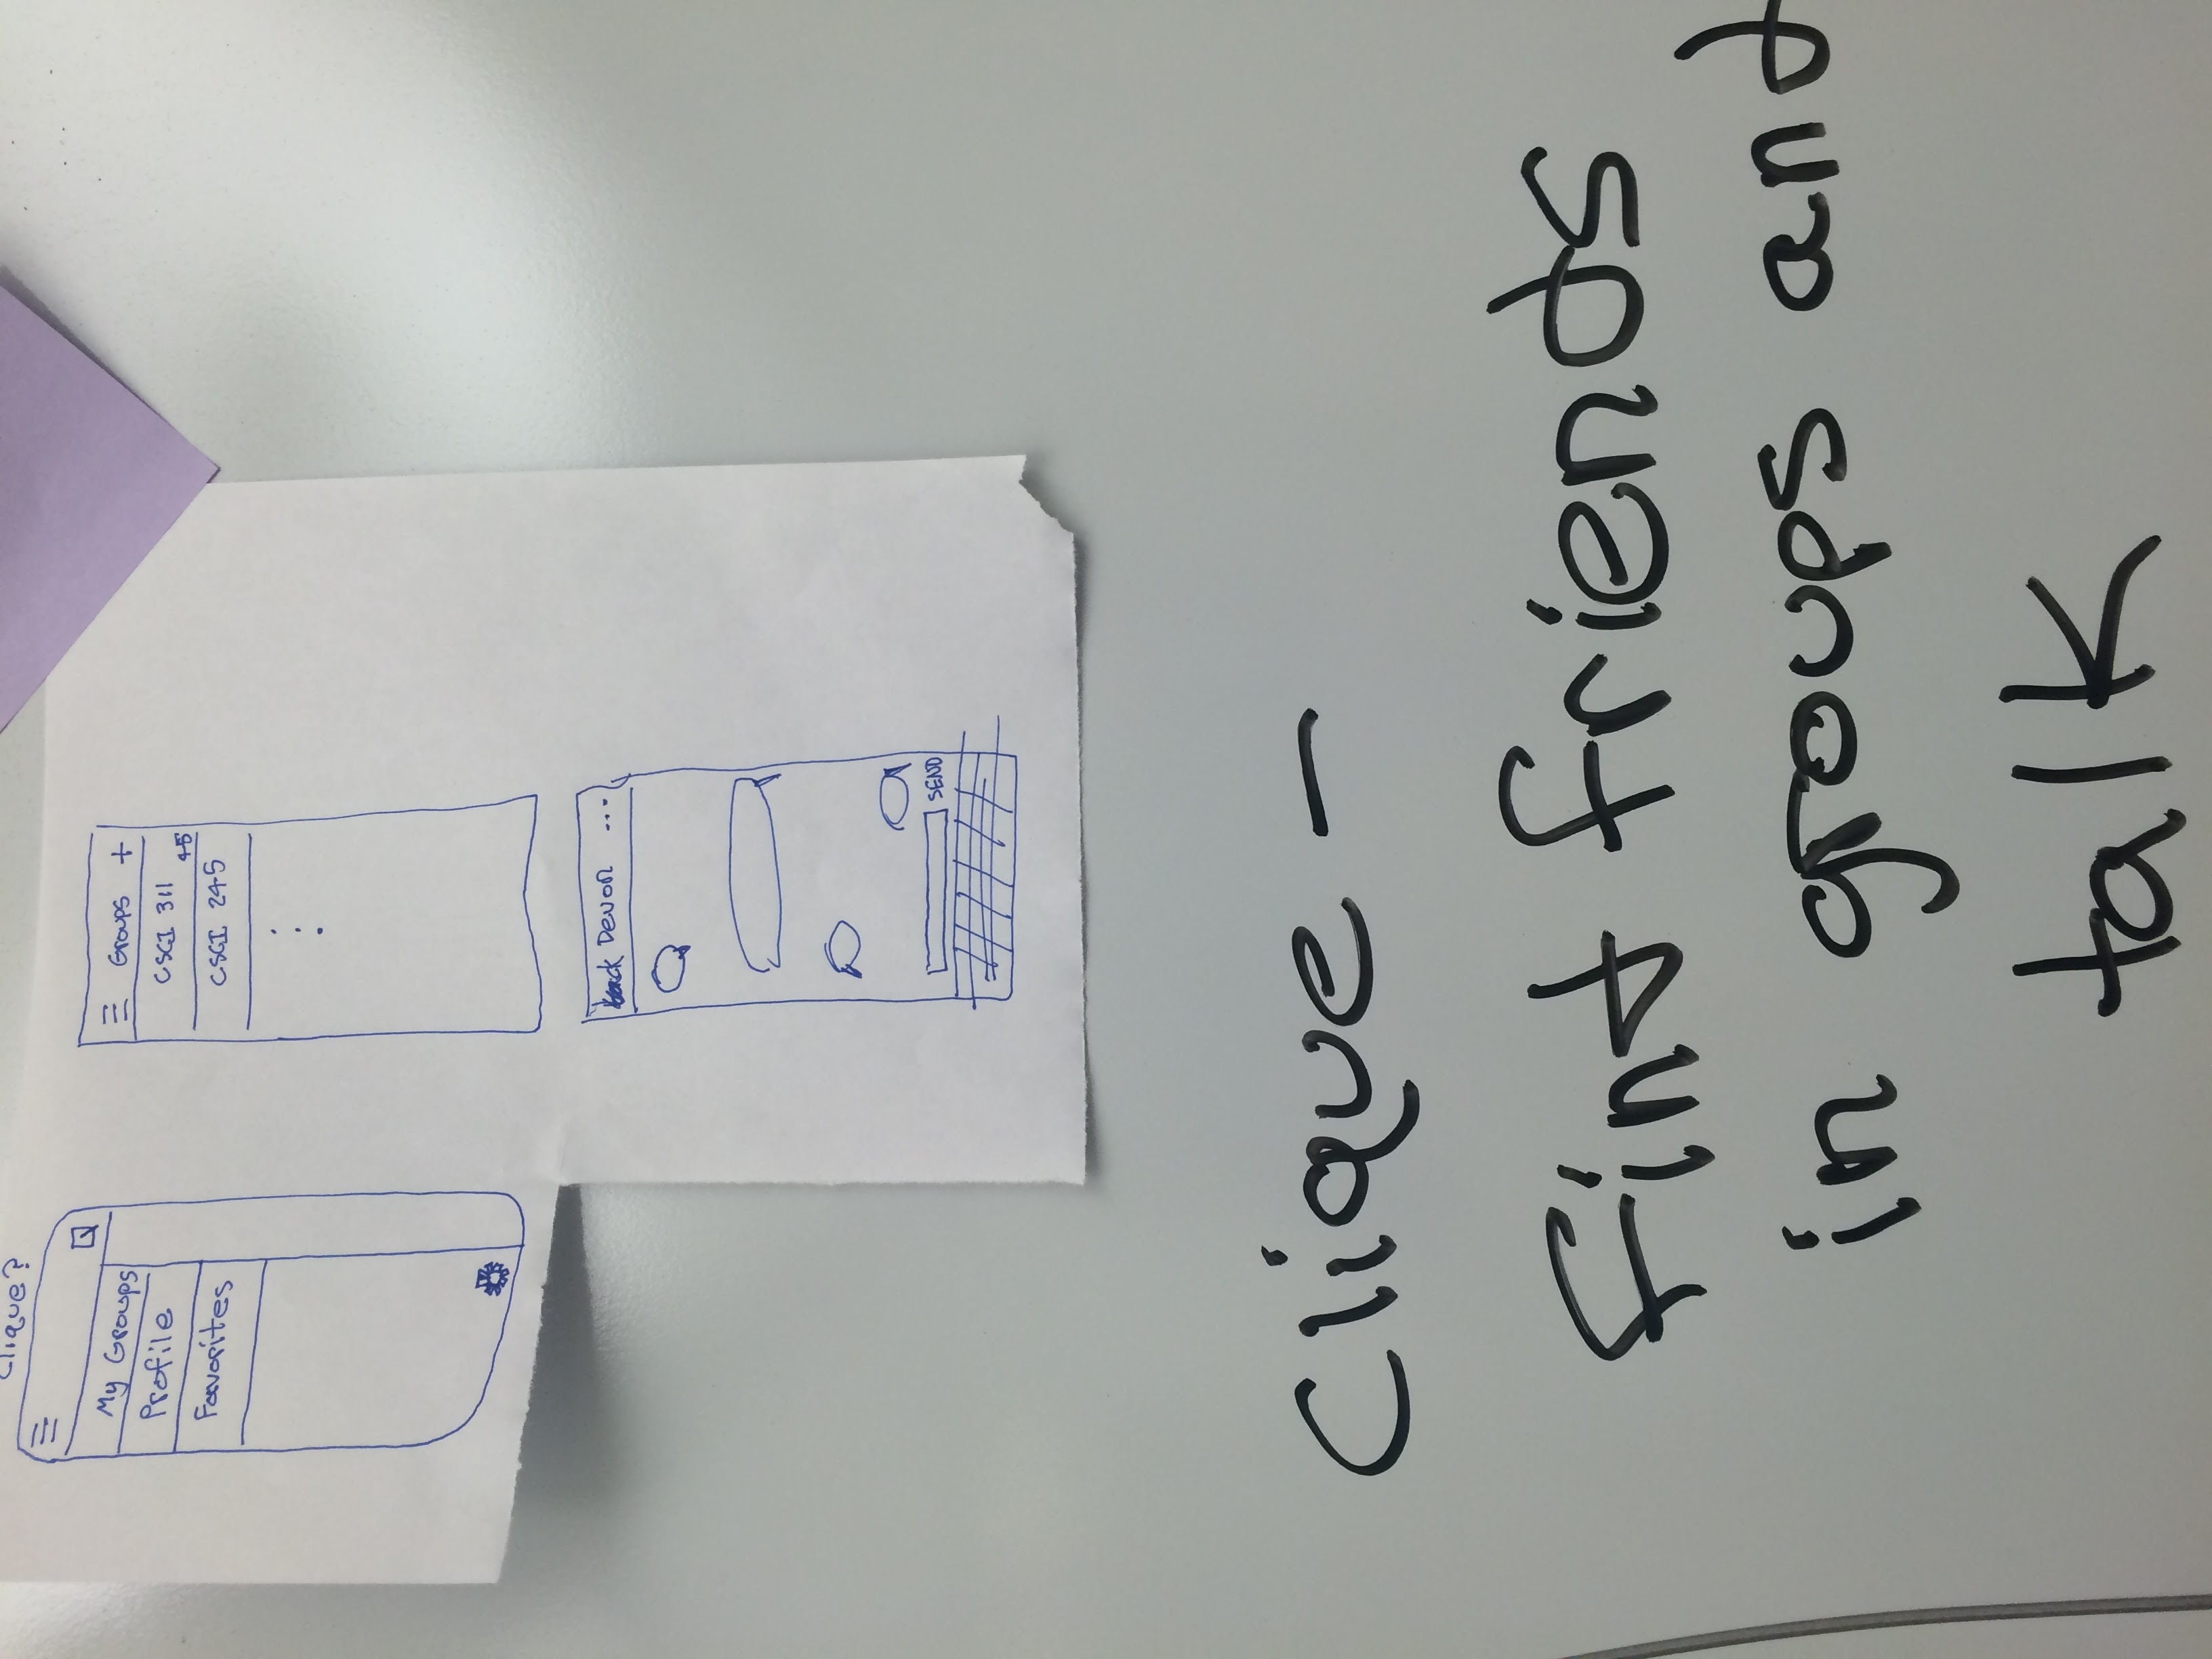 Clique?
My Groups
Profile
Favorites
Groups +
CSGI 311
45
CSGI 245
back Devon ...
SEND
Clique -
Find friends
in groups and
talk